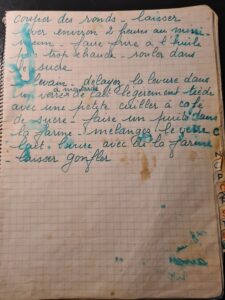 couper des ronds - laisser
lever environ 2 heures au mini-
mum - faire frire à l'huile
pas trop chaude - rouler dans
le sucre
levain - délayer la levure dans
à moitié
un verre de lait légèrement tiède
avec une petite cuiller à café
de sucre - faire un puits dans
la farine - mélanger le verre
lait - levure avec de la farine
- laisser gonfler